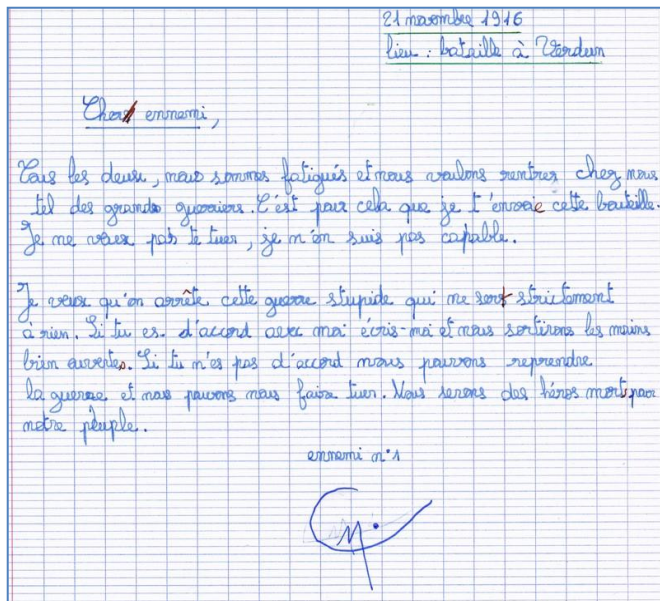 21 novembre 1916
lieu : bataille à Verdun
Cher ennemi,
Tous les deux, nous sommes fatigués et nous voulons rentrer chez nous
tel des grands guerriers. C'est pour cela que je t'envoie cette bouteille.
Je ne veux pas te tuer, je n'en suis pas capable.
Je veux qu'on arrête cette guerre stupide qui ne sert strictement
à rien. Si tu es d'accord avec moi écris-moi et nous sortirons les mains
bien ouvertes. Si tu n'es pas d'accord nous pouvons reprendre
la guerre et nous pouvons nous faire tuer. Nous serons des héros mort pour
notre peuple.
ennemi n°1